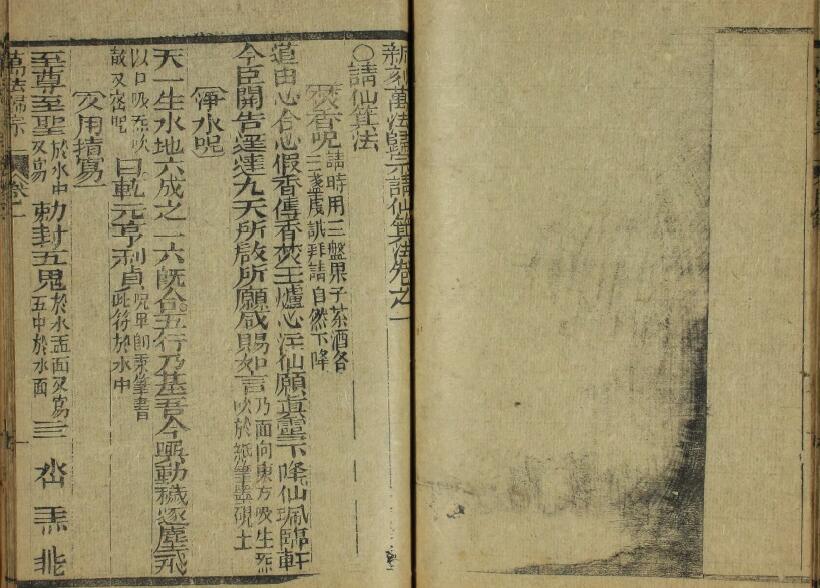 新刻萬法歸宗請仙箕法卷之一
〇請仙箕法
焚香呪 請時用三盤果子茶酒各三盞虔誠拜請自然下降
道由心合心假香傳香焚玉爐心注仙願真靈下降仙珮臨軒
今臣開告逕達九天所啟所願咸賜如言 乃面向東方吸生炁吹於紙筆墨硯上
淨水呪
天一生水地六成之一六既合五行乃基吾今興動穢逐塵飛
以口吸炁吹 又密呪曰乾元亨利貞 呪畢即乘筆書此符於水中
又用 寫
至尊至聖 於水中又寫 勅封五鬼 於水盂面又寫 五中於水面 三
萬法歸宗 卷一